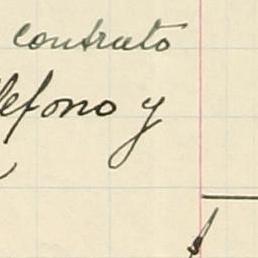 contrato
lefono y